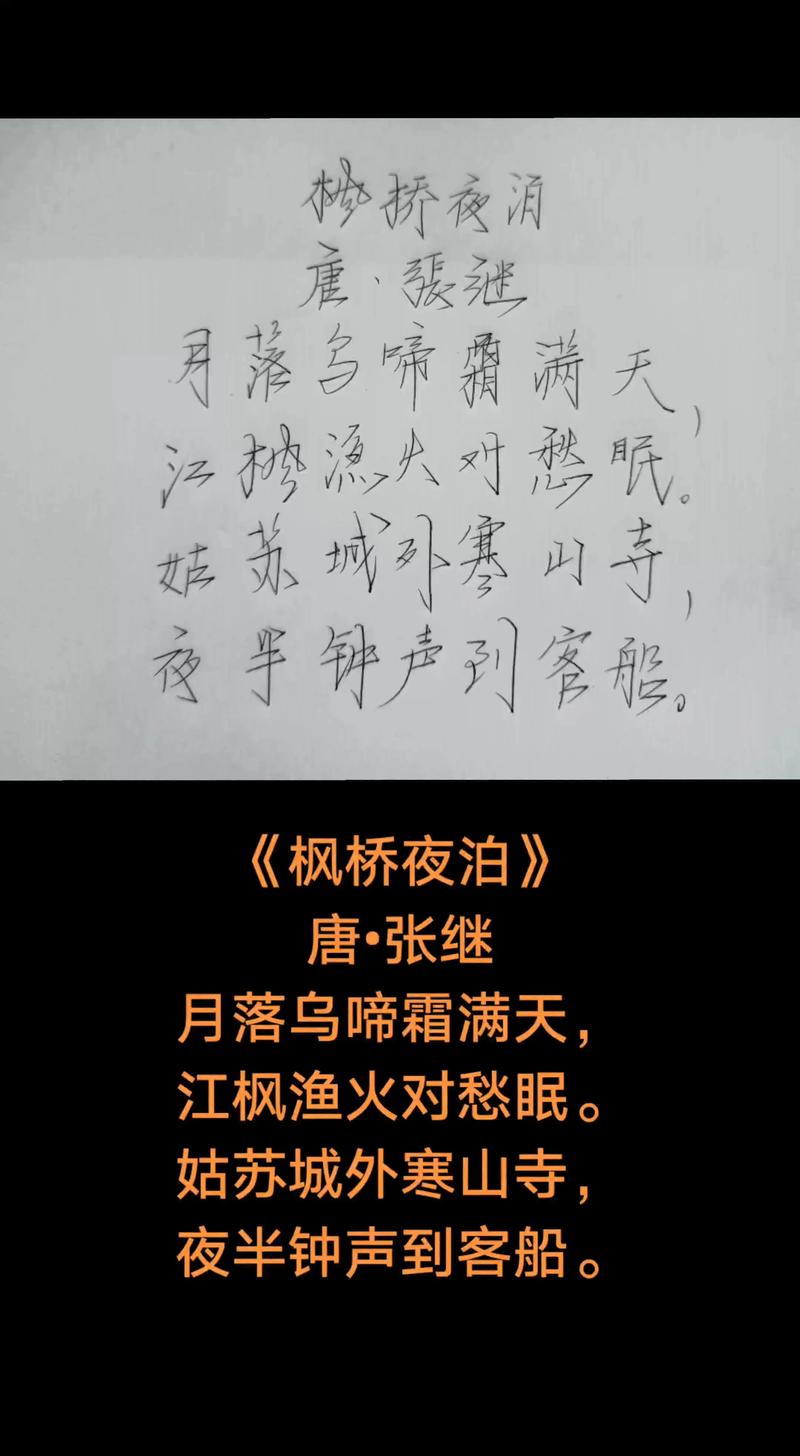 枫桥夜泊
唐·張继
月落乌啼霜满天，
江枫渔火对愁眠。
姑苏城外寒山寺，
夜半钟声到客船。
《枫桥夜泊》
唐·张继
月落乌啼霜满天，
江枫渔火对愁眠。
姑苏城外寒山寺，
夜半钟声到客船。